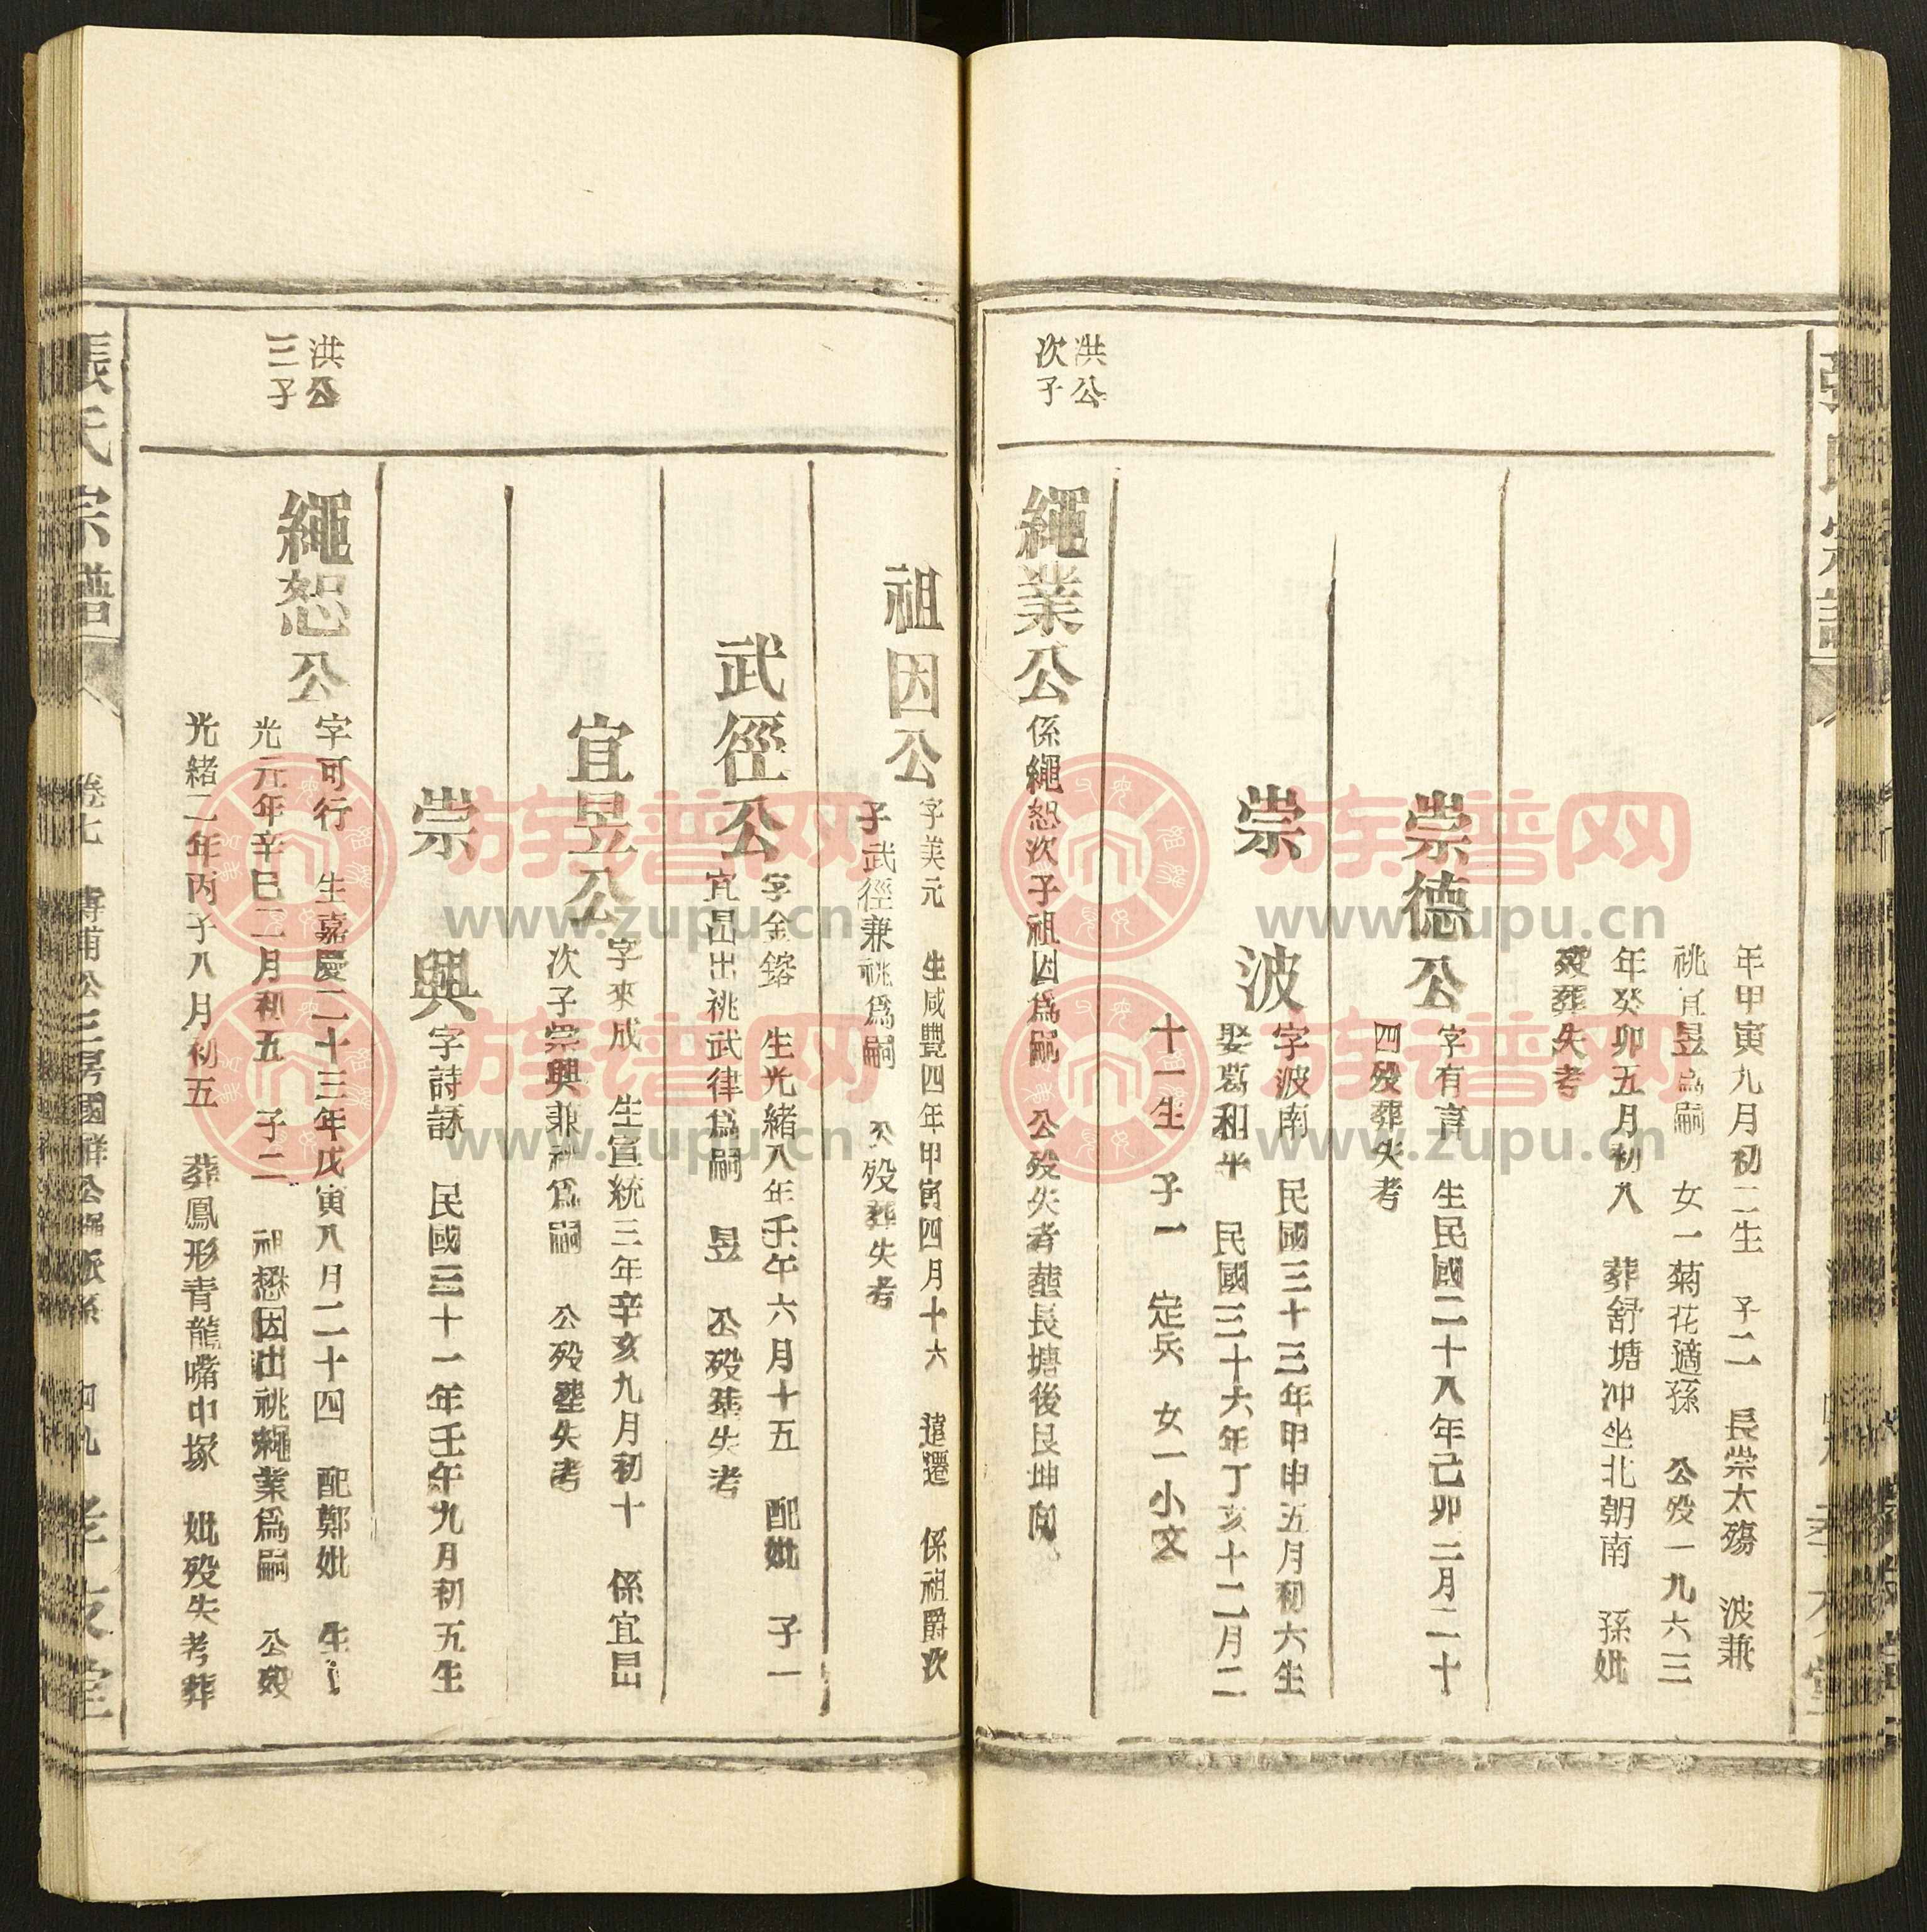 年甲寅九月初二生　子二　長崇太殤　波兼
祧宜昱為嗣　女一菊花適孫　公歿一九六三
年癸卯五月初八　葬舒塘冲坐北朝南　孫妣
歿葬失考
崇德公
字有書　生民國二十八年己卯二月二十
四歿葬失考
崇波
字波南　民國三十三年甲申五月初六生
娶葛和平　民國三十六年丁亥十二月二
十一生　子一　定兵　女一小文
洪公
次子
繩業公
係繩恕次子祖因為嗣　公歿失考塟長塘後艮坤向
祖因公
字美元　生咸豐四年甲寅四月十六　遠遷　係祖爵次
子武徑兼祧為嗣　公歿葬失考
武徑公
字金鎔　生光緒八年壬午六月十五　配妣　子一
宜昌出祧武律為嗣　昱　公歿塟失考
宜昱公
字來成　生宣統三年辛亥九月初十　係宜昌
次子崇興兼祧為嗣　公歿塟失考
崇興
字詩詠　民國三十一年壬午九月初五生
洪公
三子
繩恕公
字可行　生嘉慶二十三年戊寅八月二十四　配鄭妣　生道
光元年辛巳二月初五　子二　祖懋因出祧繩業為嗣　公歿
光緒二年丙子八月初五　葬鳳形青龍嘴中塚　妣歿失考葬
張氏宗譜
卷七　三房國祥公　派系　四九　孝友堂